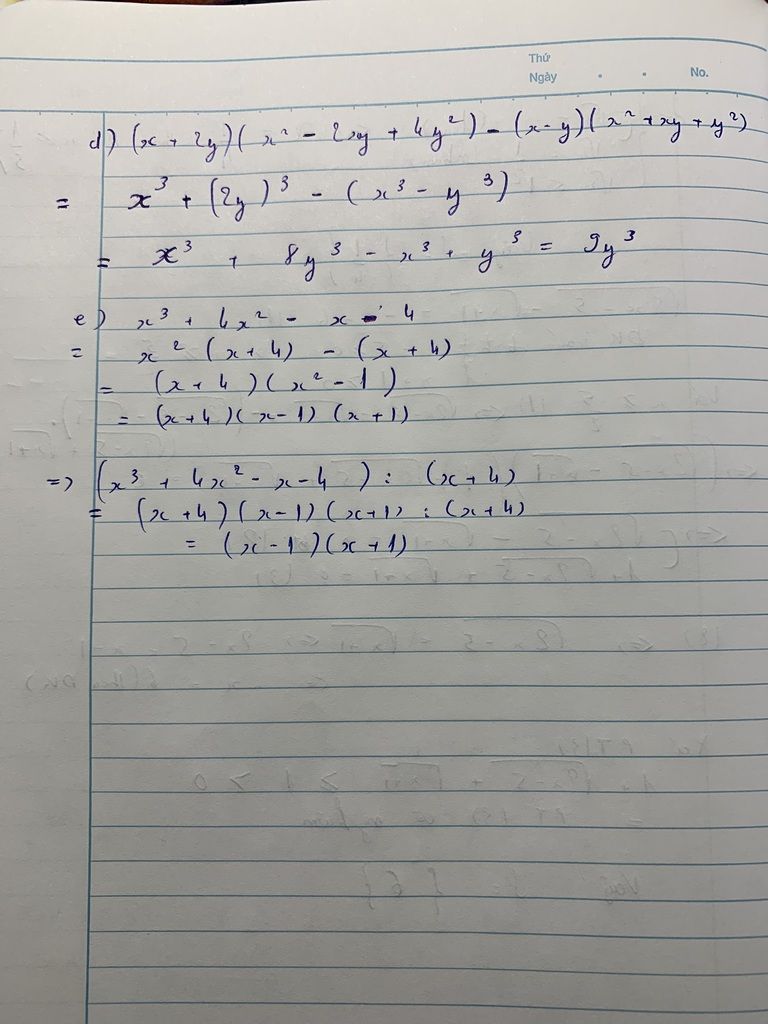 Thứ
Ngày . . No.
d) (x + 2y)(x² - 2xy + 4y²) - (x - y)(x² + xy + y²)
= x³ + (2y)³ - (x³ - y³)
= x³ + 8y³ - x³ + y³ = 9y³
e) x³ + 4x² - x - 4
= x² (x + 4) - (x + 4)
= (x + 4)(x² - 1)
= (x + 4)(x - 1)(x + 1)
=> (x³ + 4x² - x - 4) : (x + 4)
= (x + 4)(x - 1)(x + 1) : (x + 4)
= (x - 1)(x + 1)